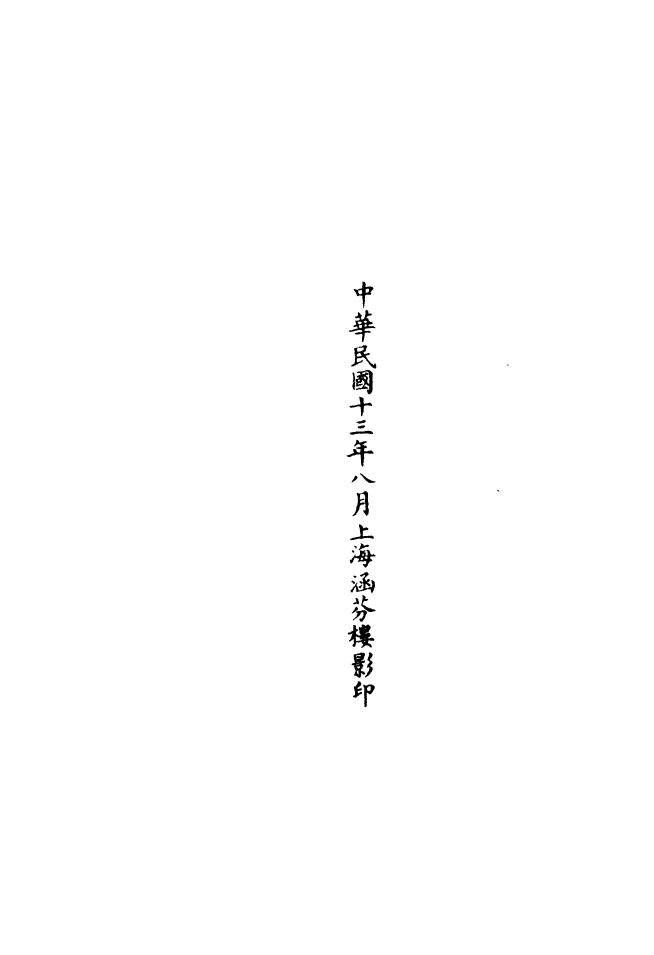 中華民國十三年八月上海涵芬樓影印